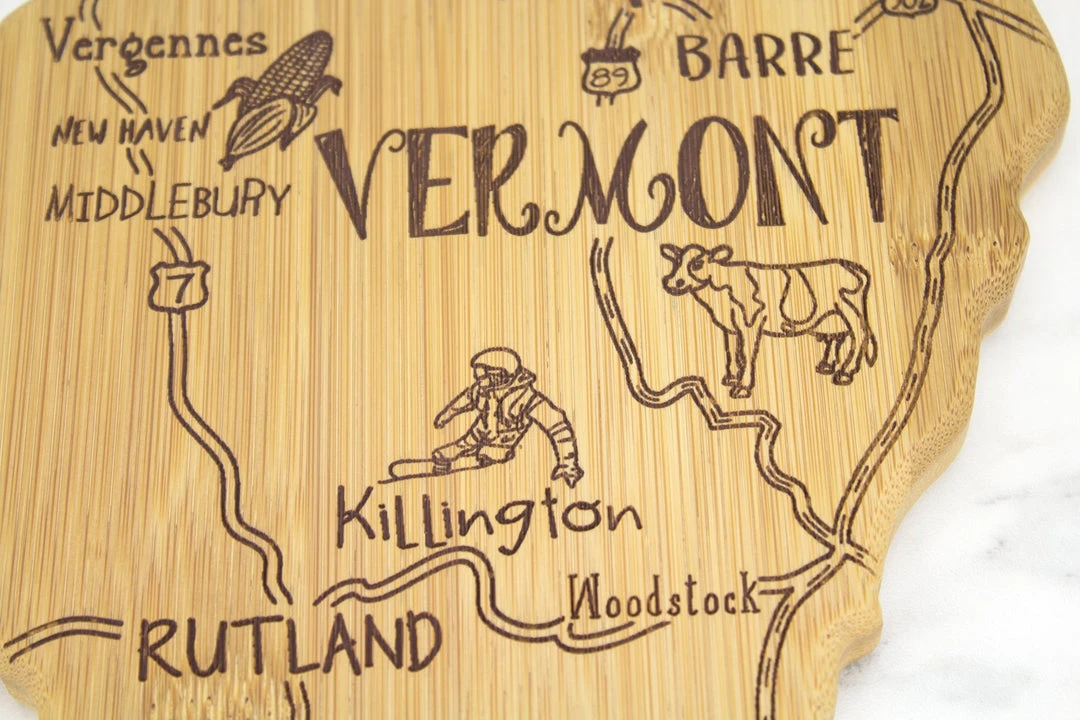 Vergennes
89
BARRE
NEW HAVEN
VERMONT
MIDDLEBURY
7
Killington
Woodstock
RUTLAND